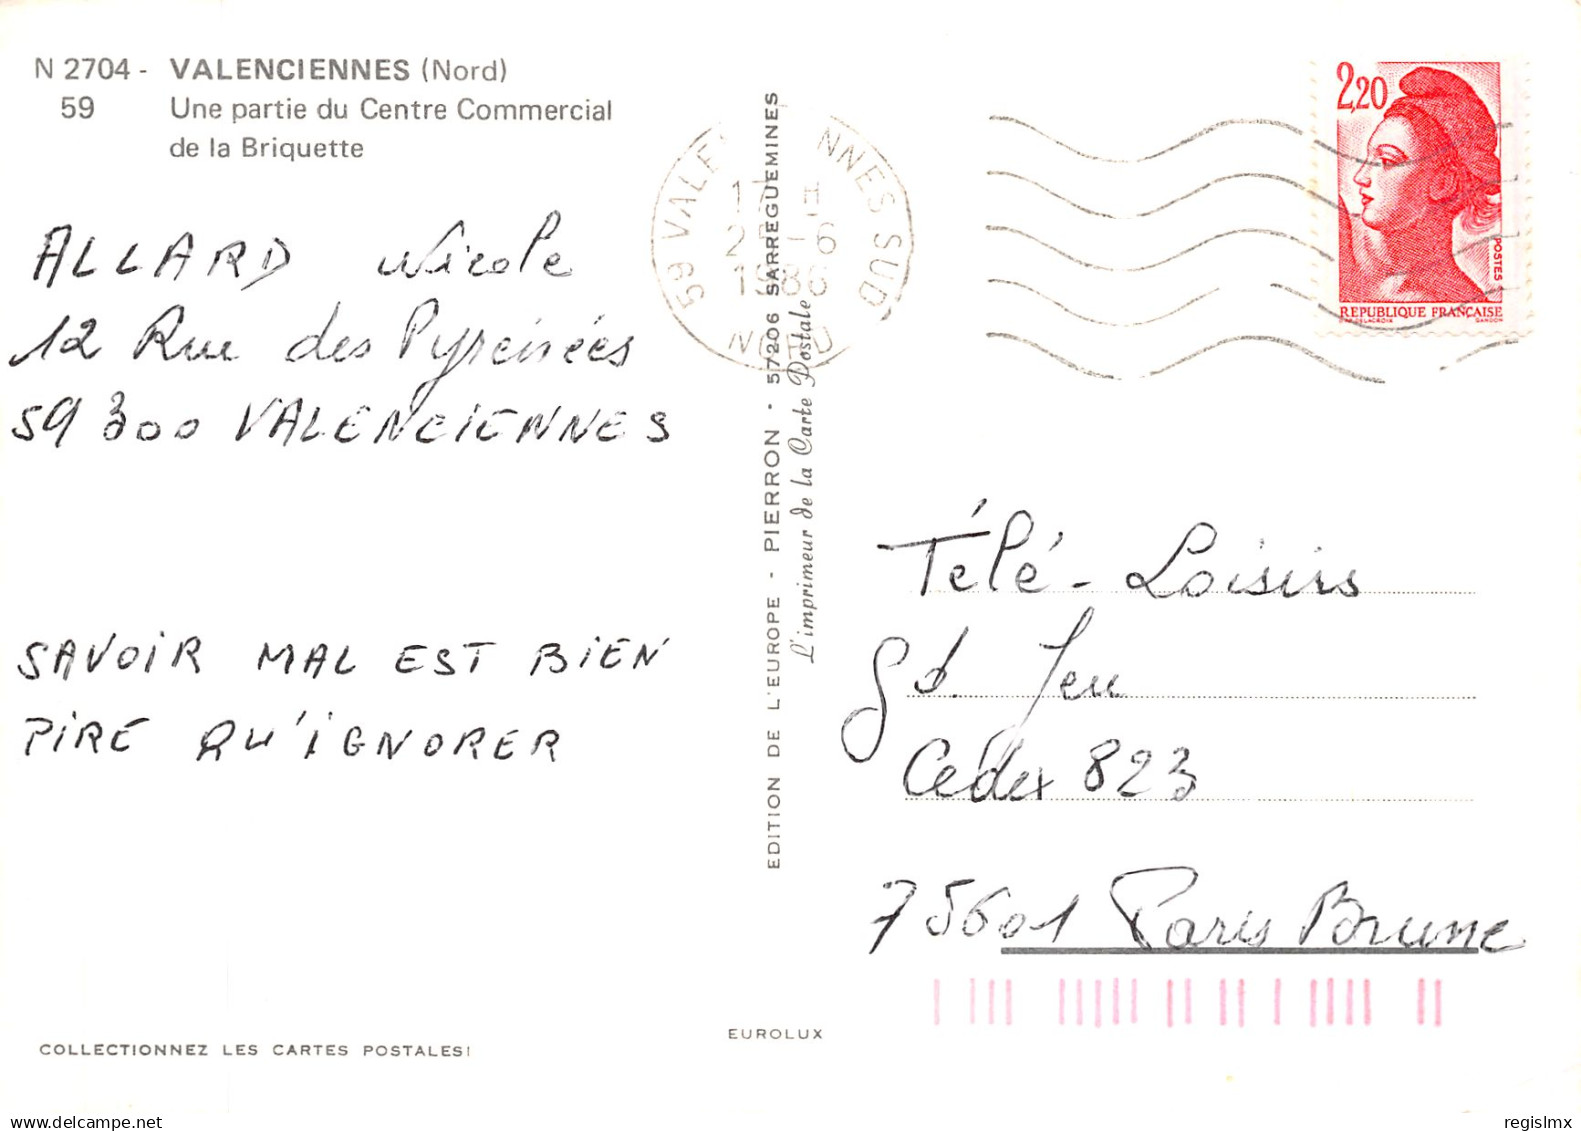 N 2704 - VALENCIENNES (Nord)
59 Une partie du Centre Commercial
de la Briquette
ALLARD Nicole
12 Rue des Pyrénées
59300 VALENCIENNES
SAVOIR MAL EST BIEN
PIRE QU'IGNORER
COLLECTIONNEZ LES CARTES POSTALES!
EDITION DE L'EUROPE - PIERRON - 57206 SARREGUEMINES
L'imprimeur de la Carte Postale
EUROLUX
59 VALENCIENNES SUD
17 H
-6
1986
NORD
2,20
POSTES
REPUBLIQUE FRANÇAISE
DELACROIX GANDON
Télé-Loisirs
gd. Jeu
Cedex 823
75601 Paris Brune
regislmx